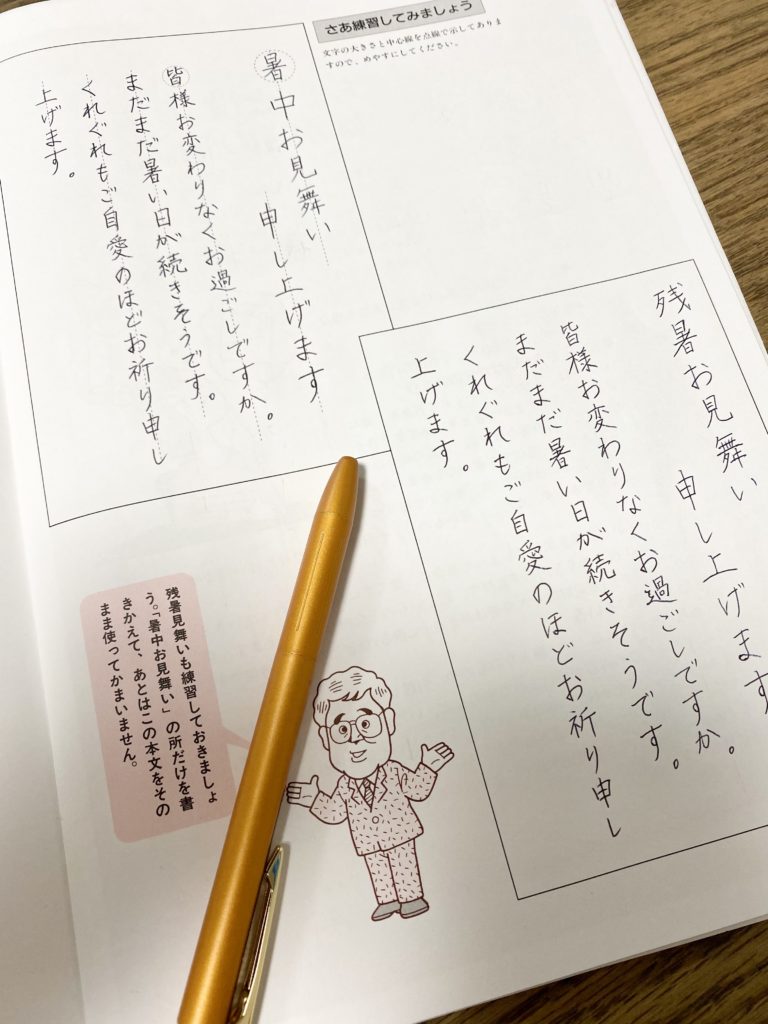 さあ練習してみましょう
文字の大きさと中心線を点線で示してありま
すので、めやすにしてください。
暑中お見舞い
申し上げます
皆様お変わりなくお過ごしですか。
まだまだ暑い日が続きそうです。
くれぐれもご自愛のほどお祈り申し
上げます。
残暑お見舞い
申し上げます
皆様お変わりなくお過ごしですか。
まだまだ暑い日が続きそうです。
くれぐれもご自愛のほどお祈り申し
上げます。
残暑見舞いも練習しておきましょ
う。「暑中お見舞い」の所だけを書
きかえて、あとはこの本文をその
まま使ってかまいません。